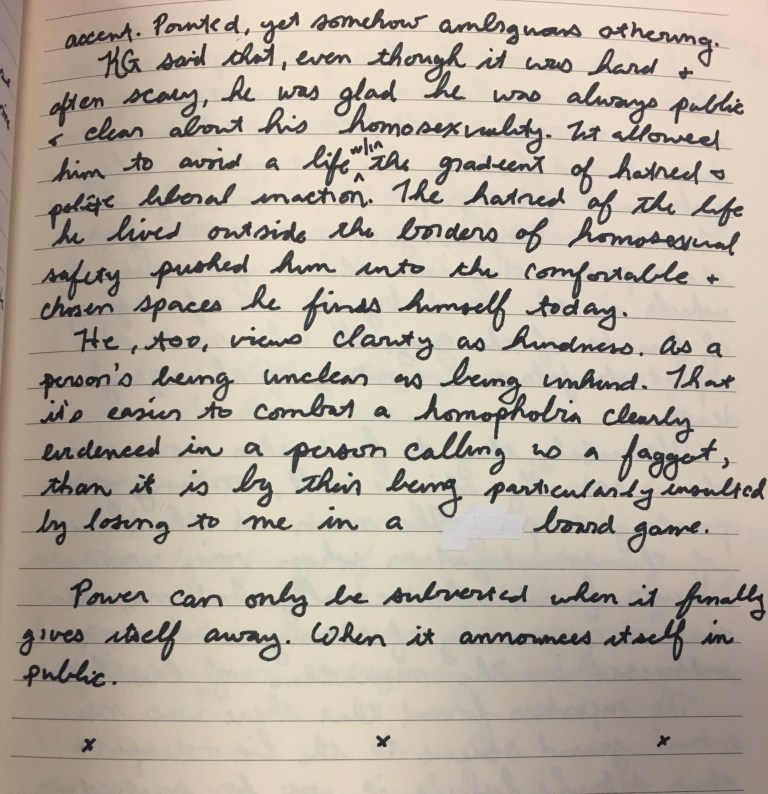 accent. Pointed, yet somehow ambiguous othering.
KG said that, even though it was hard +
often scary, he was glad he was always public
+ clear about his homosexuality. It allowed
him to avoid a life w/in the gradient of hatred +
polite liberal inaction. The hatred of the life
he lived outside the borders of homosexual
safety pushed him into the comfortable +
chosen spaces he finds himself today.
He, too, views clarity as kindness. As a
person's being unclear as being unkind. That
it's easier to combat a homophobia clearly
evidenced in a person calling us a faggot,
than it is by their being particularly insulted
by losing to me in a board game.
Power can only be subverted when it finally
gives itself away. When it announces itself in
public.
x x x